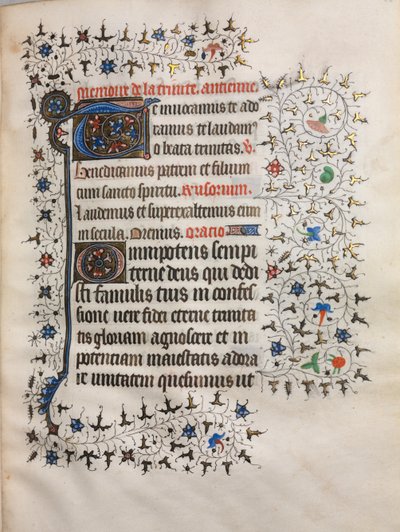 Memoire de la trinite. antienne.
Te invocamus te ado
ramus te laudam9
o beata trinitas. V.
Benedicamus patrem et filium
cum sancto spiritu. Responsorium.
Laudemus et superexaltemus eum
in secula. Oremus. oratio
Omnipotens sempi
terne deus qui dedi
sti famulis tuis in confes
sione vere fidei eterne trinita
tis gloriam agnoscere et in
potenciam maiestatis adora
re unitatem quesumus ut